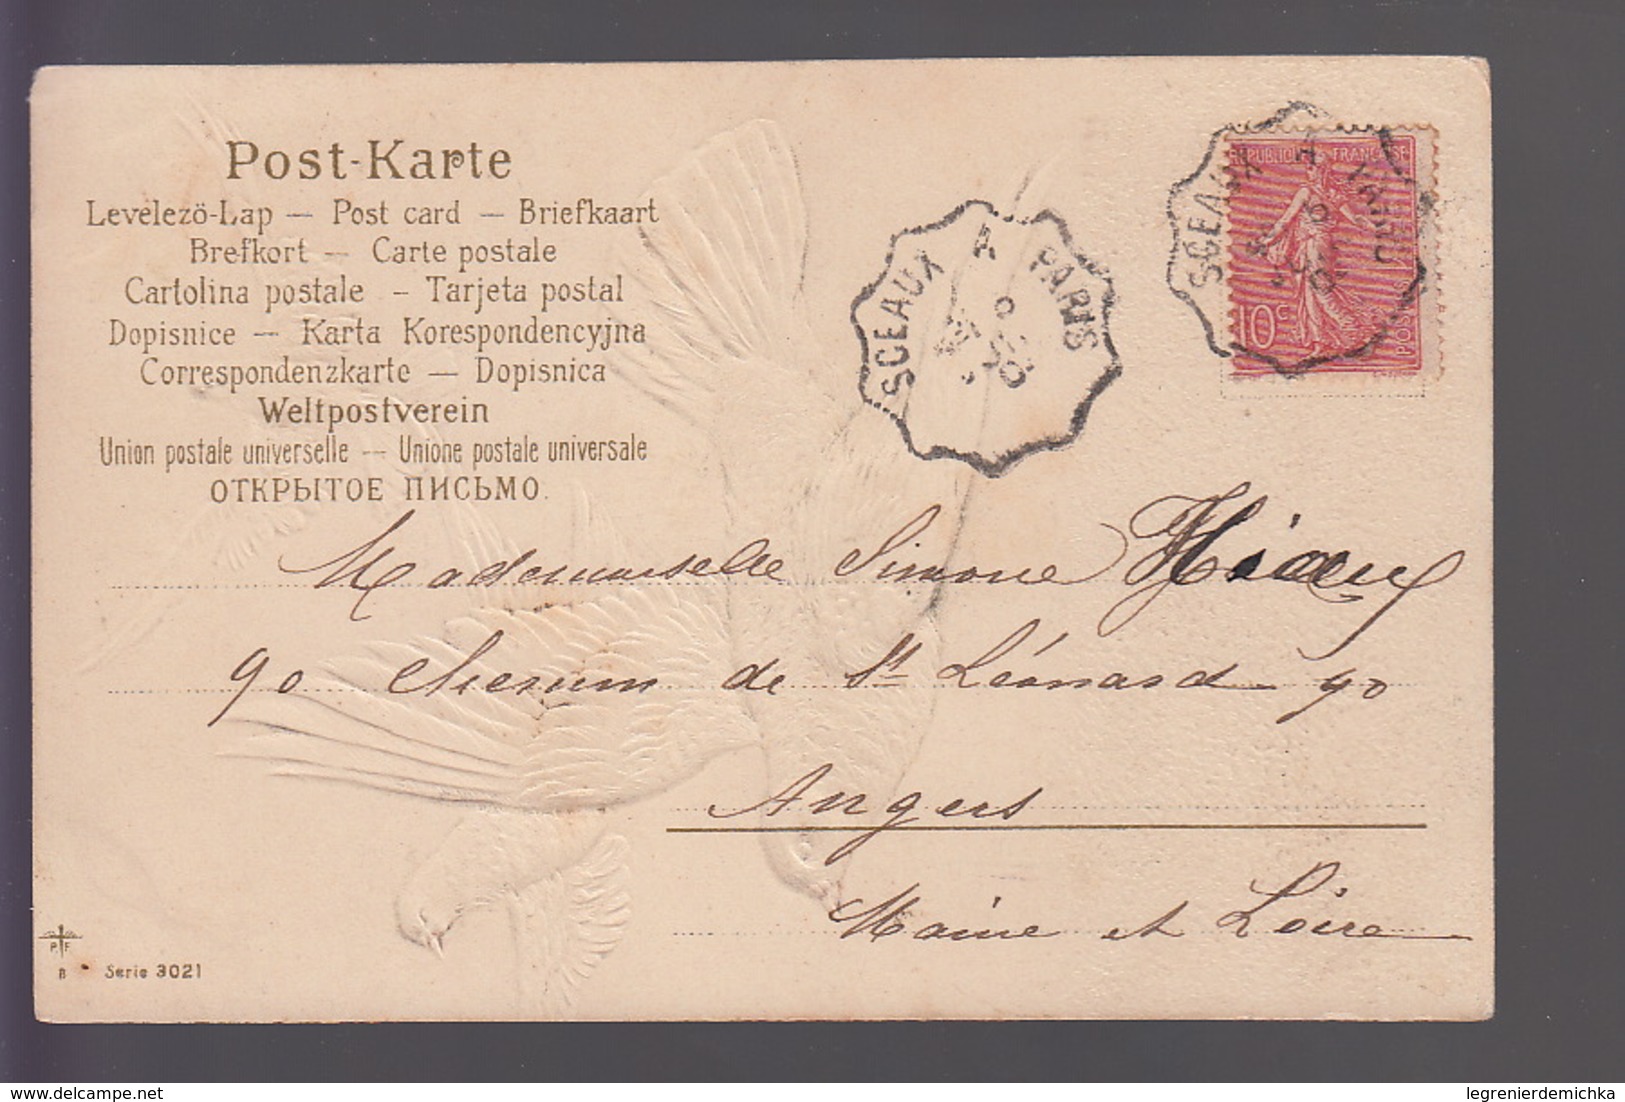 Post-Karte
Levelezö-Lap — Post card — Briefkaart
Brefkort — Carte postale
Cartolina postale — Tarjeta postal
Dopisnice — Karta Korespondencyjna
Correspondenzkarte — Dopisnica
Weltpostverein
Union postale universelle — Unione postale universale
ОТКРЫТОЕ ПИСЬМО.
SCEAUX A PARIS
SCEAUX A
REPUBLIQUE FRANÇAISE
10c
POSTES
Mademoiselle Simone
90 Chemin de St Léonard 90
Angers
Maine et Loire
P F
B
Serie 3021
delcampe.net
legrenierdemichka